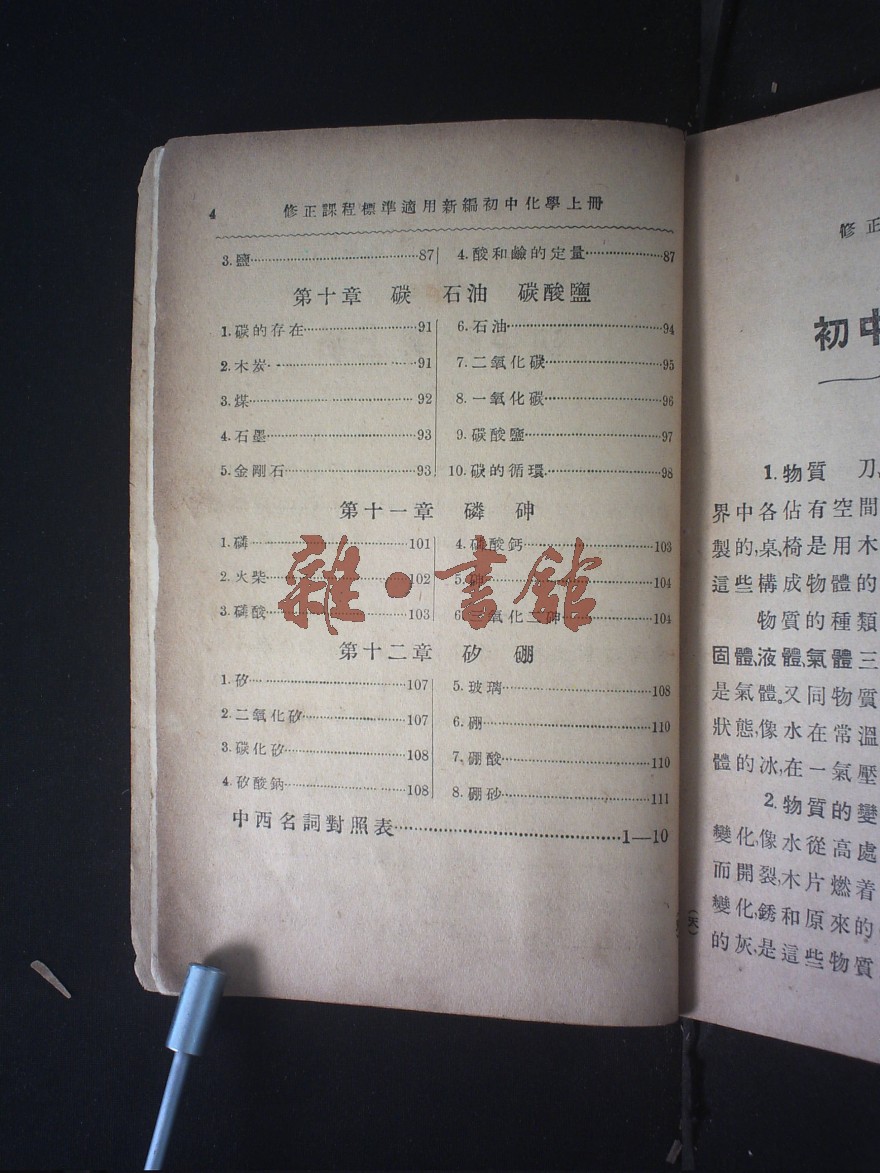 4 修正課程標準適用新編初中化學上冊
3. 鹽……87 4. 酸和鹼的定量……87
第十章 碳 石油 碳酸鹽
1. 碳的存在……91 6. 石油……94
2. 木炭……91 7. 二氧化碳……95
3. 煤……92 8. 一氧化碳……96
4. 石墨……93 9. 碳酸鹽……97
5. 金剛石……93 10. 碳的循環……98
第十一章 磷 砷
1. 磷……101 4. 磷酸鈣……103
2. 火柴……102 5. 砷……104
3. 磷酸……103 6. 三氧化二砷……104
第十二章 矽 硼
1. 矽……107 5. 玻璃……108
2. 二氧化矽……107 6. 硼……110
3. 碳化矽……108 7. 硼酸……110
4. 矽酸鈉……108 8. 硼砂……111
中西名詞對照表……1—10
雜·書館
修正
初中
1. 物質 刀,
界中各佔有空間
製的,桌,椅是用木
這些構成物體的
物質的種類
固體,液體,氣體三
是氣體。又同物質
狀態,像水在常溫
體的冰,在一氣壓
2. 物質的變
變化,像水從高處
而開裂,木片燃着
變化,銹和原來的
的灰,是這些物質